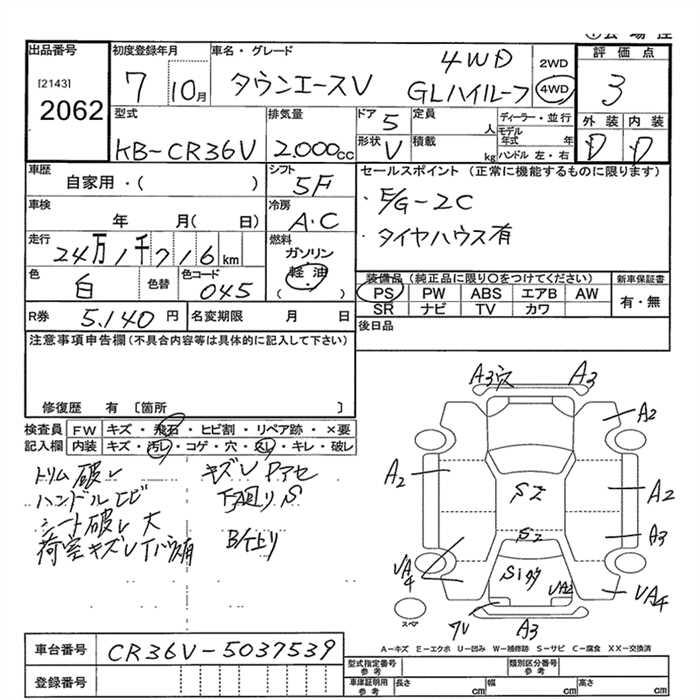 出品番号
[2143]
2062
初度登録年月
7 10月
車名・グレード
タウンエースV
4WD
GLハイルーフ
2WD
4WD
評価点
3
外装 内装
D D
型式
KB-CR36V
排気量
2.000cc
ドア
5
形状
V
定員
人
積載
kg
ディーラー・並行
モデル年式 年
ハンドル 左・右
車歴
自家用・( )
シフト
5F
セールスポイント (正常に機能するものに限ります)
・E/G-2C
・タイヤハウス有
車検
年 月( 日)
冷房
A・C
走行
24万1千716km
燃料
ガソリン
軽油
( ・ )
色
白
色替
色コード
045
装備品 (純正品に限り○をつけてください)
PS PW ABS エアB AW
SR ナビ TV カワ
新車保証書
有・無
R券
5,140円
名変期限 月 日
後日品
注意事項申告欄(不具合内容等は具体的に記入して下さい)
修復歴 有 〔箇所 〕
検査員 FW キズ・飛石・ヒビ割・リペア跡・×要
記入欄 内装 キズ・汚レ・コゲ・穴・スレ・キレ・破レ
トリム破レ
ハンドルヒビ
シート破レ大
キズレ
下廻りS
A3穴 A3
A2
A2
A2
SZ
A3
S2
VA4
VA2
VA4
A3
スペア
車台番号
CR36V-5037539
登録番号
A-キズ E-エクボ U-凹み W-補修跡 S-サビ C-腐食 XX-交換済
型式指定番号 参考
類別区分番号 参考
車庫証明用 参考
長さ cm 幅 cm 高さ cm